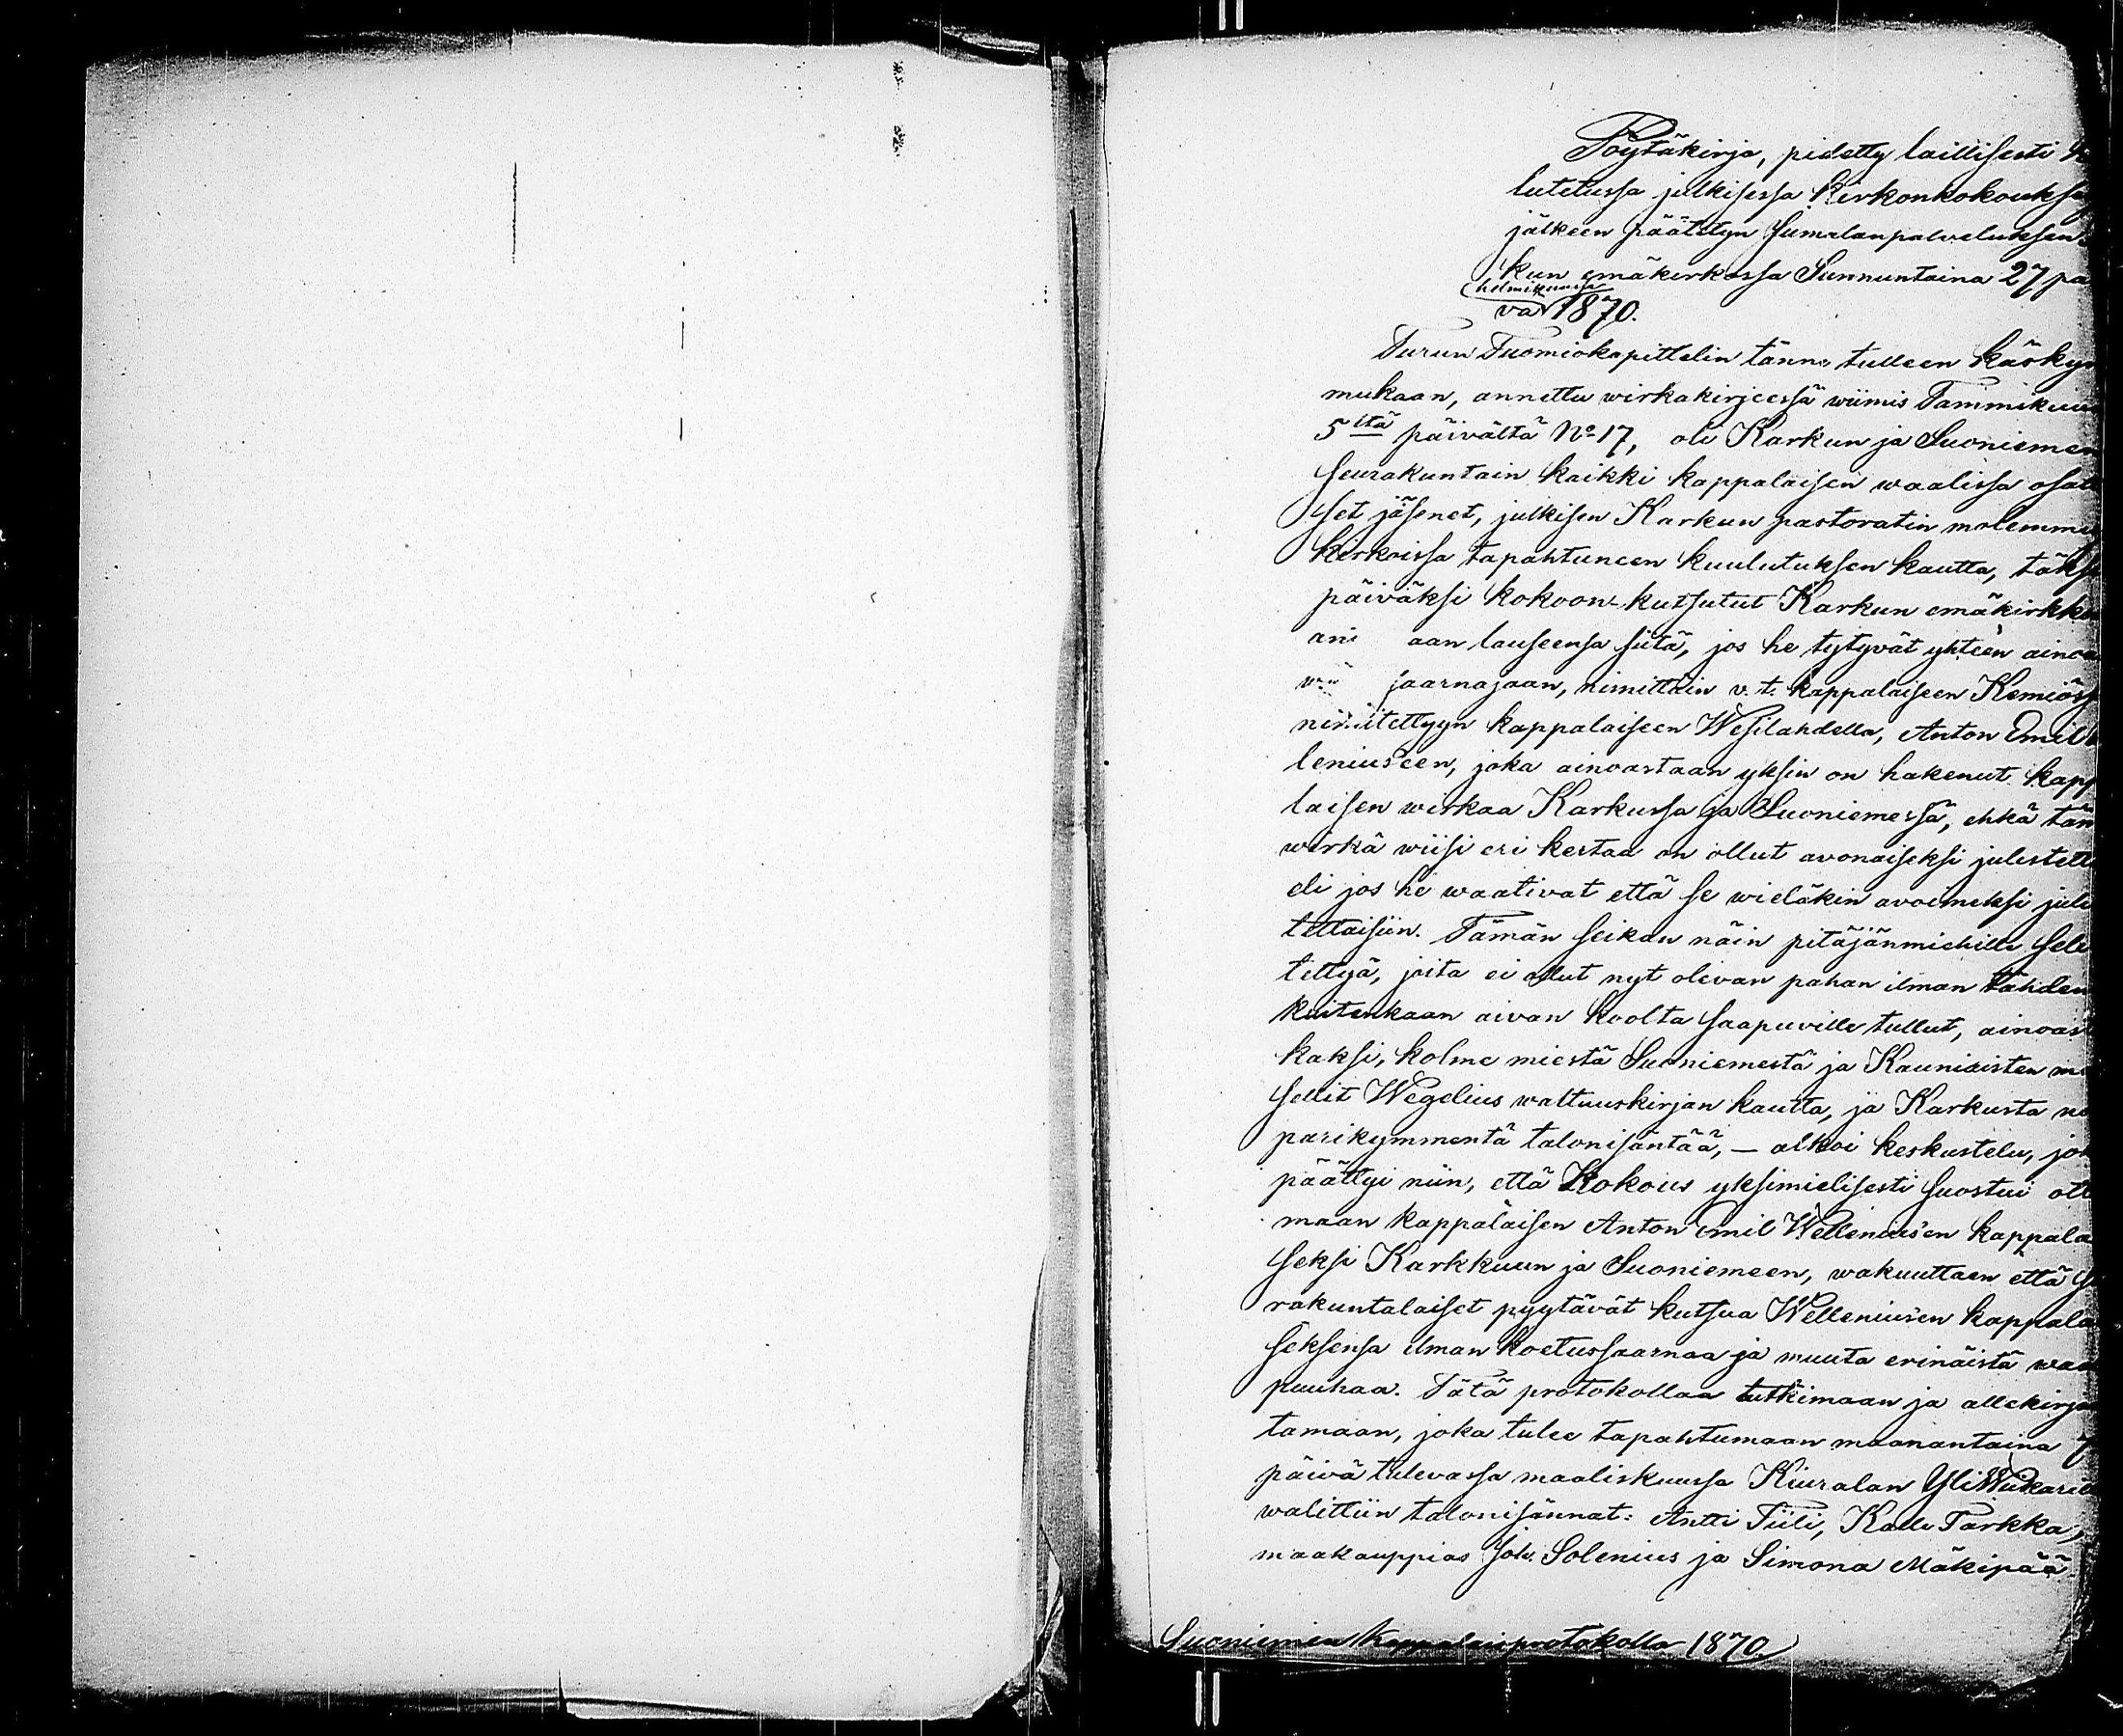 Pöytäkirja, pidetty laillisesti
lutetussa julkisessa Kirkonkokouksa
jälkeen päätetyn Jumalanpalveluksen
kun emäkirkossa Sunnuntaina 27 pä
helmikuussa
vä 1870.
Turun Tuomiokapittelin tänne tulleen käskyn
mukaan, annettu wirkakirjeessä wiimis Tammikuu
5 ltä päivältä No 17, oli Karkun ja Suoniemen
seurakuntain kaikki kappalaisen waalissa osal
set jäsenet, julkisen Karkun pastoratin molemmi
kirkoissa tapahtuneen kuulutuksen kautta, täks
päiväksi kokoon-kutsutut Karkun emäkirkko
an aan lauseensa siitä, jos he tytyvät yhteen ainoa
saarnajaan, nimittäin v. t. kappalaiseen Kemiöss
nimitettyyn kappalaiseen Wesilahdella, Anton Emil
leniuseen, joka ainoastaan yksin on hakenut kapp
laisen wirkaa Karkussa ja Suoniemessä, ehkä täm
wirka wiisi eri kertaa on ollut avonaiseksi julistett
eli jos he waativat että se wieläkin avoimeksi juli
tettaisiin. Tämän seikan näin pitäjänmiehille sele
tettyä, joita ei ollut nyt olevan pahan ilman tähden
kuitenkaan aivan koolta saapuville tullut, ainoast
kaksi, kolme miestä Suoniemestä ja Kauniaisten m
sellit Wegelius waltuuskirjan kautta, ja Karkusta no
parikymmentä talonisäntää, — alkoi keskustelu, jok
päättyi niin, että Kokous yksimielisesti suostui ott
maan kappalaisen Anton Emil Wellenius'en kappala
seksi Karkkuun ja Suoniemeen, wakuuttaen että se
rakuntalaiset pyytävät kutsua Wellenius'en kappala
seksensa ilman koetussaarnaa ja muuta erinäistä waa
puuhaa. Tätä protokollaa tutkimaan ja allekirjoi
tamaan, joka tulee tapahtumaan maanantaina 7
päivä tulevassa maaliskuussa Kiuralan YliWikaril
walittiin talonisännät: Antti Tiili, Kalle Tarkka,
maakauppias Joh. Solenius ja Simona Mäkipää.
Suoniemen kappalaisprotokolla 1870.